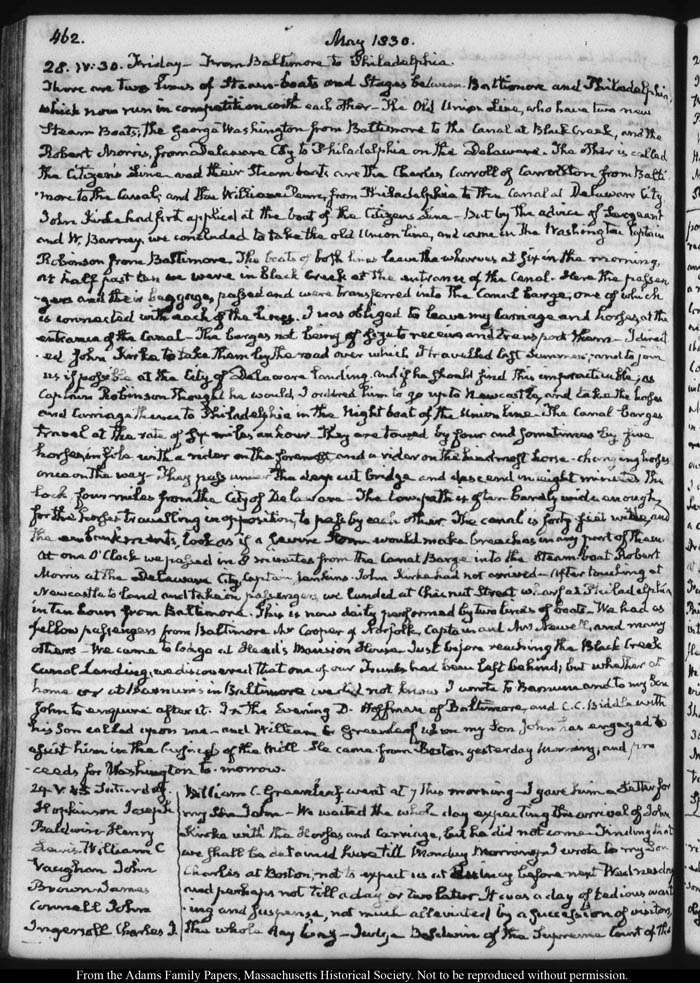 462.
May 1830.
28. IV:30. Friday — From Baltimore to Philadelphia.
There are two lines of Steam-boats and Stages between Baltimore and Philadelphia,
which now run in competition with each other — The Old Union Line, who have two new
Steam Boats, the George Washington from Baltimore to the Canal at Black Creek, and the
Robert Morris, from Delaware City to Philadelphia on the Delaware. The other is called
the Citizens Line and their Steam boats are the Charles Carroll of Carrollton from Balti
-more to the Canal; and the William Penn, from Philadelphia to the Canal at Delaware City
John Kirke had first applied at the boat of the Citizens Line — But by the advice of Sergeant
and W. Barney we concluded to take the old Union Line, and came in the Washington Captain
Robinson from Baltimore. The boats of both lines leave the wharves at six in the morning.
At half past ten we were in Black Creek at the entrance of the Canal. Here the passen
-gers and their baggage, passed and were transferred into the Canal barge, one of which
is connected with each of the Lines. I was obliged to leave my Carriage and horses, at the
entrance of the Canal — The barges not being of size to receive and transport them — I direct
-ed John Kirke to take them by the road over which I travelled last Summer, and to join
us if possible at the City of Delaware landing, and if he should find this impracticable, as
Captain Robinson thought he would, I ordered him to go up to Newcastle, and take the horses
and Carriage thence to Philadelphia in the Night boat of the Union line. The Canal barges
travel at the rate of six miles an hour. They are towed by four and sometimes by five
horses in file, with a rider on the foremost and a rider on the hindmost horse — changing horses
once on the way — They pass under the deep cut bridge and descend in eight minutes the
lock four miles from the City of Delaware. The towpath is often barely wide enough,
for the horses travelling in opposition, to pass by each other. The canal is forty feet wide, and
the embankments, look as if a severe storm would make breaches in any part of them.
At one O'Clock we passed in 8 minutes from the Canal Barge into the Steam boat Robert
Morris at the Delaware City, Captain Jenkins. John Kirke had not arrived — After touching at
Newcastle to land and take in passengers, we landed at Chesnut Street wharf at Philadelphia
in ten hours from Baltimore. This is now daily performed by two lines of boats. We had as
fellow passengers from Baltimore Mr Cooper of Norfolk, Captain and Mrs Newell, and many
others — We came to lodge at Head's Mansion House. Just before reaching the Black Creek
Canal Landing, we discovered that one of our Trunks had been left behind; but whether at
home or at Barnum's in Baltimore we did not know. I wrote to Barnum and to my Son
John to enquire after it. In the Evening D. Hoffman of Baltimore, and C. C. Biddle with
his Son called upon me — and William C Greenleaf whom my Son John has engaged to
assist him in the business of the Mill. He came from Boston yesterday Morning, and pro
-ceeds for Washington to-morrow.
29. V.45 Saturday.
Hopkinson Joseph
Baldwin Henry
Lewis William C
Vaughan John
Brown James
Connell John
Ingersoll Charles J.
William C. Greenleaf went at 7 this morning — I gave him a Letter for
my Son John — We waited the whole day expecting the arrival of John
Kirke with the Horses and Carriage, but he did not come. Finding that
we shall be detained here till Monday Morning, I wrote to my Son
Charles at Boston, not to expect us at Quincy before next Wednesday
and perhaps not till a day or two later. It was a day of tedious wait
-ing and suspense, not much alleviated by a succession of visitors,
the whole day long — Judge Baldwin of the Supreme Court of the
From the Adams Family Papers, Massachusetts Historical Society. Not to be reproduced without permission.